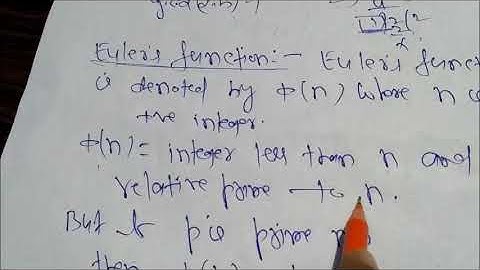 Euler's function:- Euler's funct
is denoted by φ(n) where n is
+ve integer.
φ(n) = integer less than n and
relative prime to n.
But p is prime
then